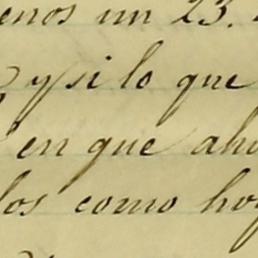 enos un 23.
y si lo que
en que aho
los como hoy